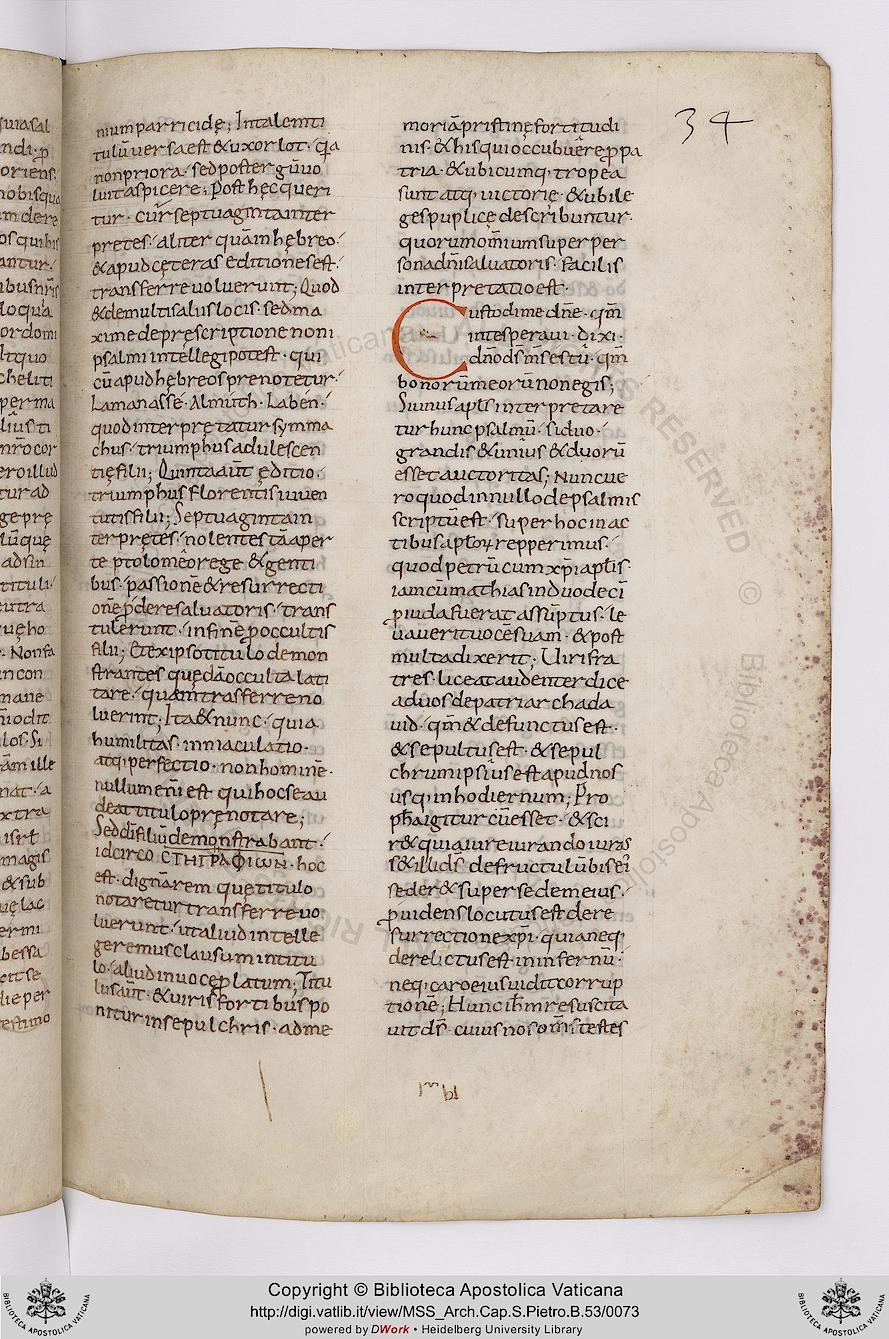 34
nium parricidę; In talem ti
tulū versa est & uxor lot · q̄a
non priora · sed poster gū vo
luit aspicere; Post hęc queri
tur · cur septuaginta inter
pretes · aliter quam hębreo ·
& apud cęteras editiones est ·
transferre voluerunt; Quod
& de multis aliis locis · sed ma
xime de pręscriptione noni
psalmi intellegi potest · qui
cū apud hębreos prenotetur ·
Lamanasse · Almuth · Laben ·
quod interprętatur symma
chus · triumphus adulescen
tię filii; Quinta aūt ęditio ·
triumphus florentis iuven
tutis filii; Septuaginta in
terpretes · nolentes tā aper
te ptolomeo rege & genti
bus · passionē & resurrecti
onē p̄dere salvatoris · trans
tulerunt · in finē p̄ occultis
filii; Et ex ipso titulo demon
strantes quędā occulta lati
tare · quam trasferre no
luerint; Ita & nunc · quia
humilitas · inmaculatio ·
atq; perfectio · non hominē ·
nullum eni est qui hoc se au
deat titulo pręnotare;
Sed dī filiū demonstrabant ·
idcirco CTHΓPAΦIωN · hoc
est · dignā rem quę titulo
notaretur transferre vo
luerunt · ut aliud in telle
geremus clausum in titu
lo · aliud in voce p̄latum; Titu
lus aūt · & viris fortibus po
nitur in sepulchris · ad me
moriā pristinę fortitudi
nis · & his qui occubuere p̄ pa
tria · & ubicumq; tropea
sunt atq; victorię · & ubi le
ges puplicę describuntur ·
quorum omium super per
sona dn̄i salvatoris · facilis
interpretatio est ·
Custodi me dn̄e · qm̄
in te speravi · dixi ·
dn̄o ds̄ ms̄ es tū · qm̄
bonorū meorū non egis;
Si unus apl̄s interpretare
tur hunc psalmū · si duo ·
grandis & unius & duorū
esset auctoritas; Nunc ve
ro quod in nullo de psalmis
scriptū est · super hoc in ac
tibus aplo℞ repperimus ·
quod petrū cum xp̄i aplis ·
iam cū mathias in duodecī
p̄ iuda fuerat assūptus · le
vaverit vocē suam · & post
multa dixerit; Viri fra
tres liceat audenter dice
ad vos de patriarcha da
vid · qm̄ & defunctus est ·
& sepultus est · & sepul
chrum ipsius est apud nos
usq; in hodiernum; Pro
ph̄a igitur cū esset · & sci
r& quia iure iurando iuras
s& illi ds̄ de fructu lūbi sei
seder& super sedem eius ·
p̄videns locutus est de re
surrectione xp̄i · quia neq;
derelictus est · in infernū ·
neq; caro eius vidit corrup
tionē; Hunc ih̄m resuscita
vit ds̄ · cuius nos om̄s testes
Copyright © Biblioteca Apostolica Vaticana
http://digi.vatlib.it/view/MSS_Arch.Cap.S.Pietro.B.53/0073
powered by DWork • Heidelberg University Library